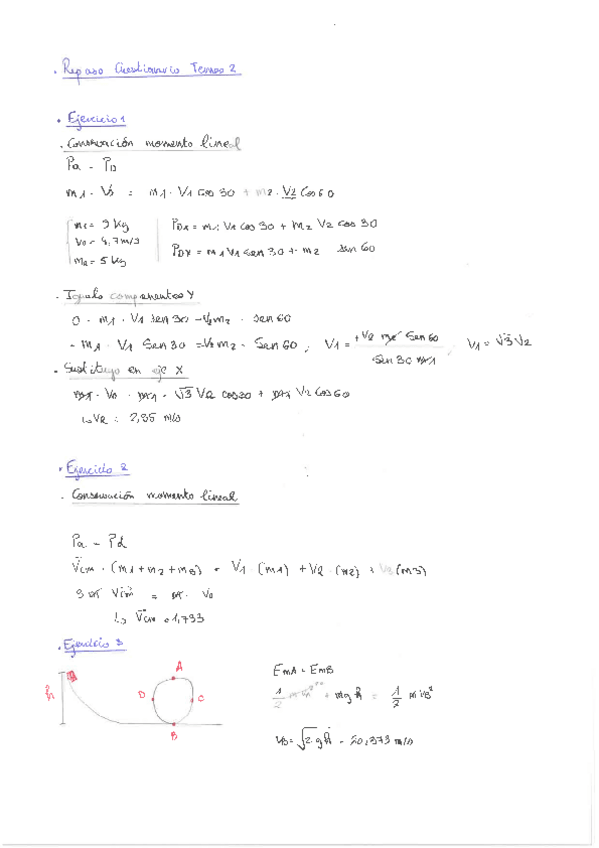 . Repaso Cuestionario Temas 2
. Ejercicio 1
. Conservación momento lineal
Pa = PD
m1 · V0 = m1 · V1 cos 30 + m2 · V2 cos 60
V0 = 4,7 m/s
m2 = 5 kg
PDX = m1 V1 cos 30 + m2 V2 cos 30
PDY = m1 V1 sen 30 + m2 sen 60
. Igualo componentes Y
0 = m1 · V1 sen 30 - V2 m2 · sen 60
- m1 · V1 sen 30 = -V2 m2 · sen 60 ;
V1 = +V2 m2 sen 60 / sen 30 m1 , V1 = √3 V2
. Sustituyo en eje X
· V0 = · √3 V2 cos 30 + V2 cos 60
↳ V2 = 2,35 m/s
. Ejercicio 2
. Conservación momento lineal
Pa = Pd
Vcm · (m1 + m2 + m3) = V1 · (m1) + V2 · (m2) + V3 (m3)
3 m Vcm = m · V0
↳ Vcm = 1,733
. Ejercicio 3
A
D
C
B
h
EmA = EmB
+ mg h = 1/2 m vB²
vB = √2·g h = 20,373 m/s